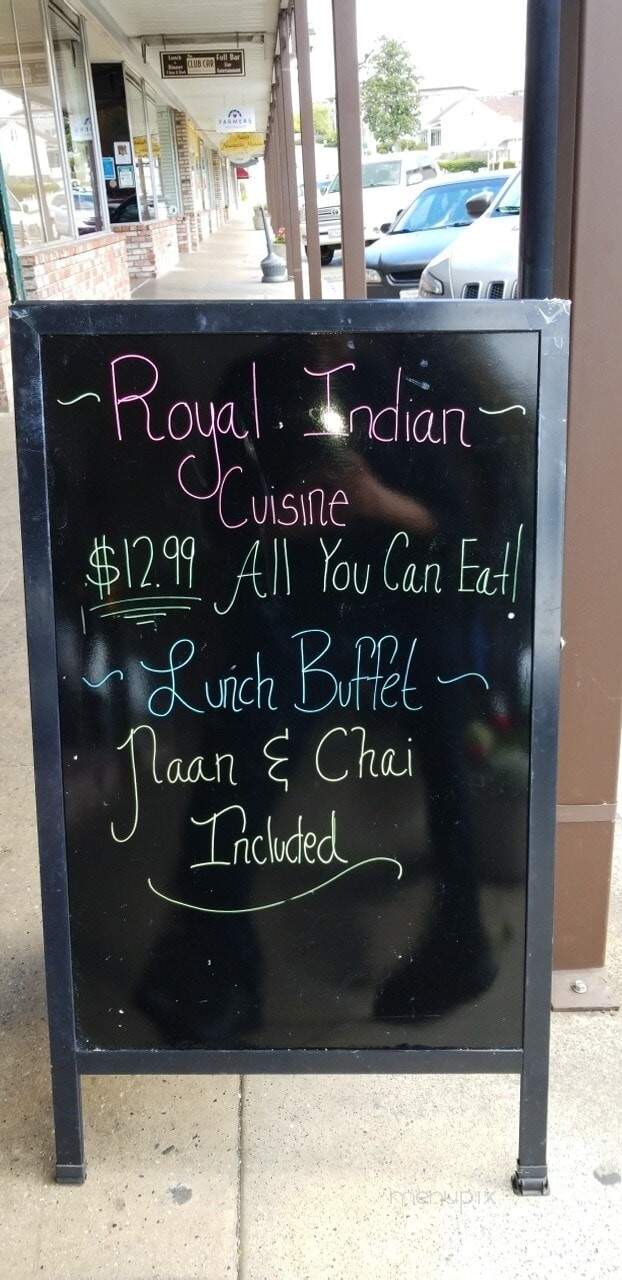 Lunch
Dinner
The
CLUB CAR
Full Bar
Live
Entertainment
FARMERS
~Royal Indian~
Cuisine
$12.99 All You Can Eat!
~ Lunch Buffet ~
Naan & Chai
Included
menupix